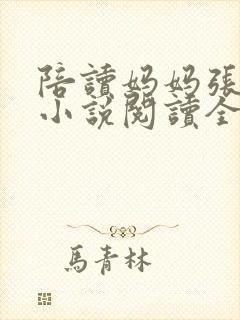 陪讀媽媽張
小說閱讀全
馬青林